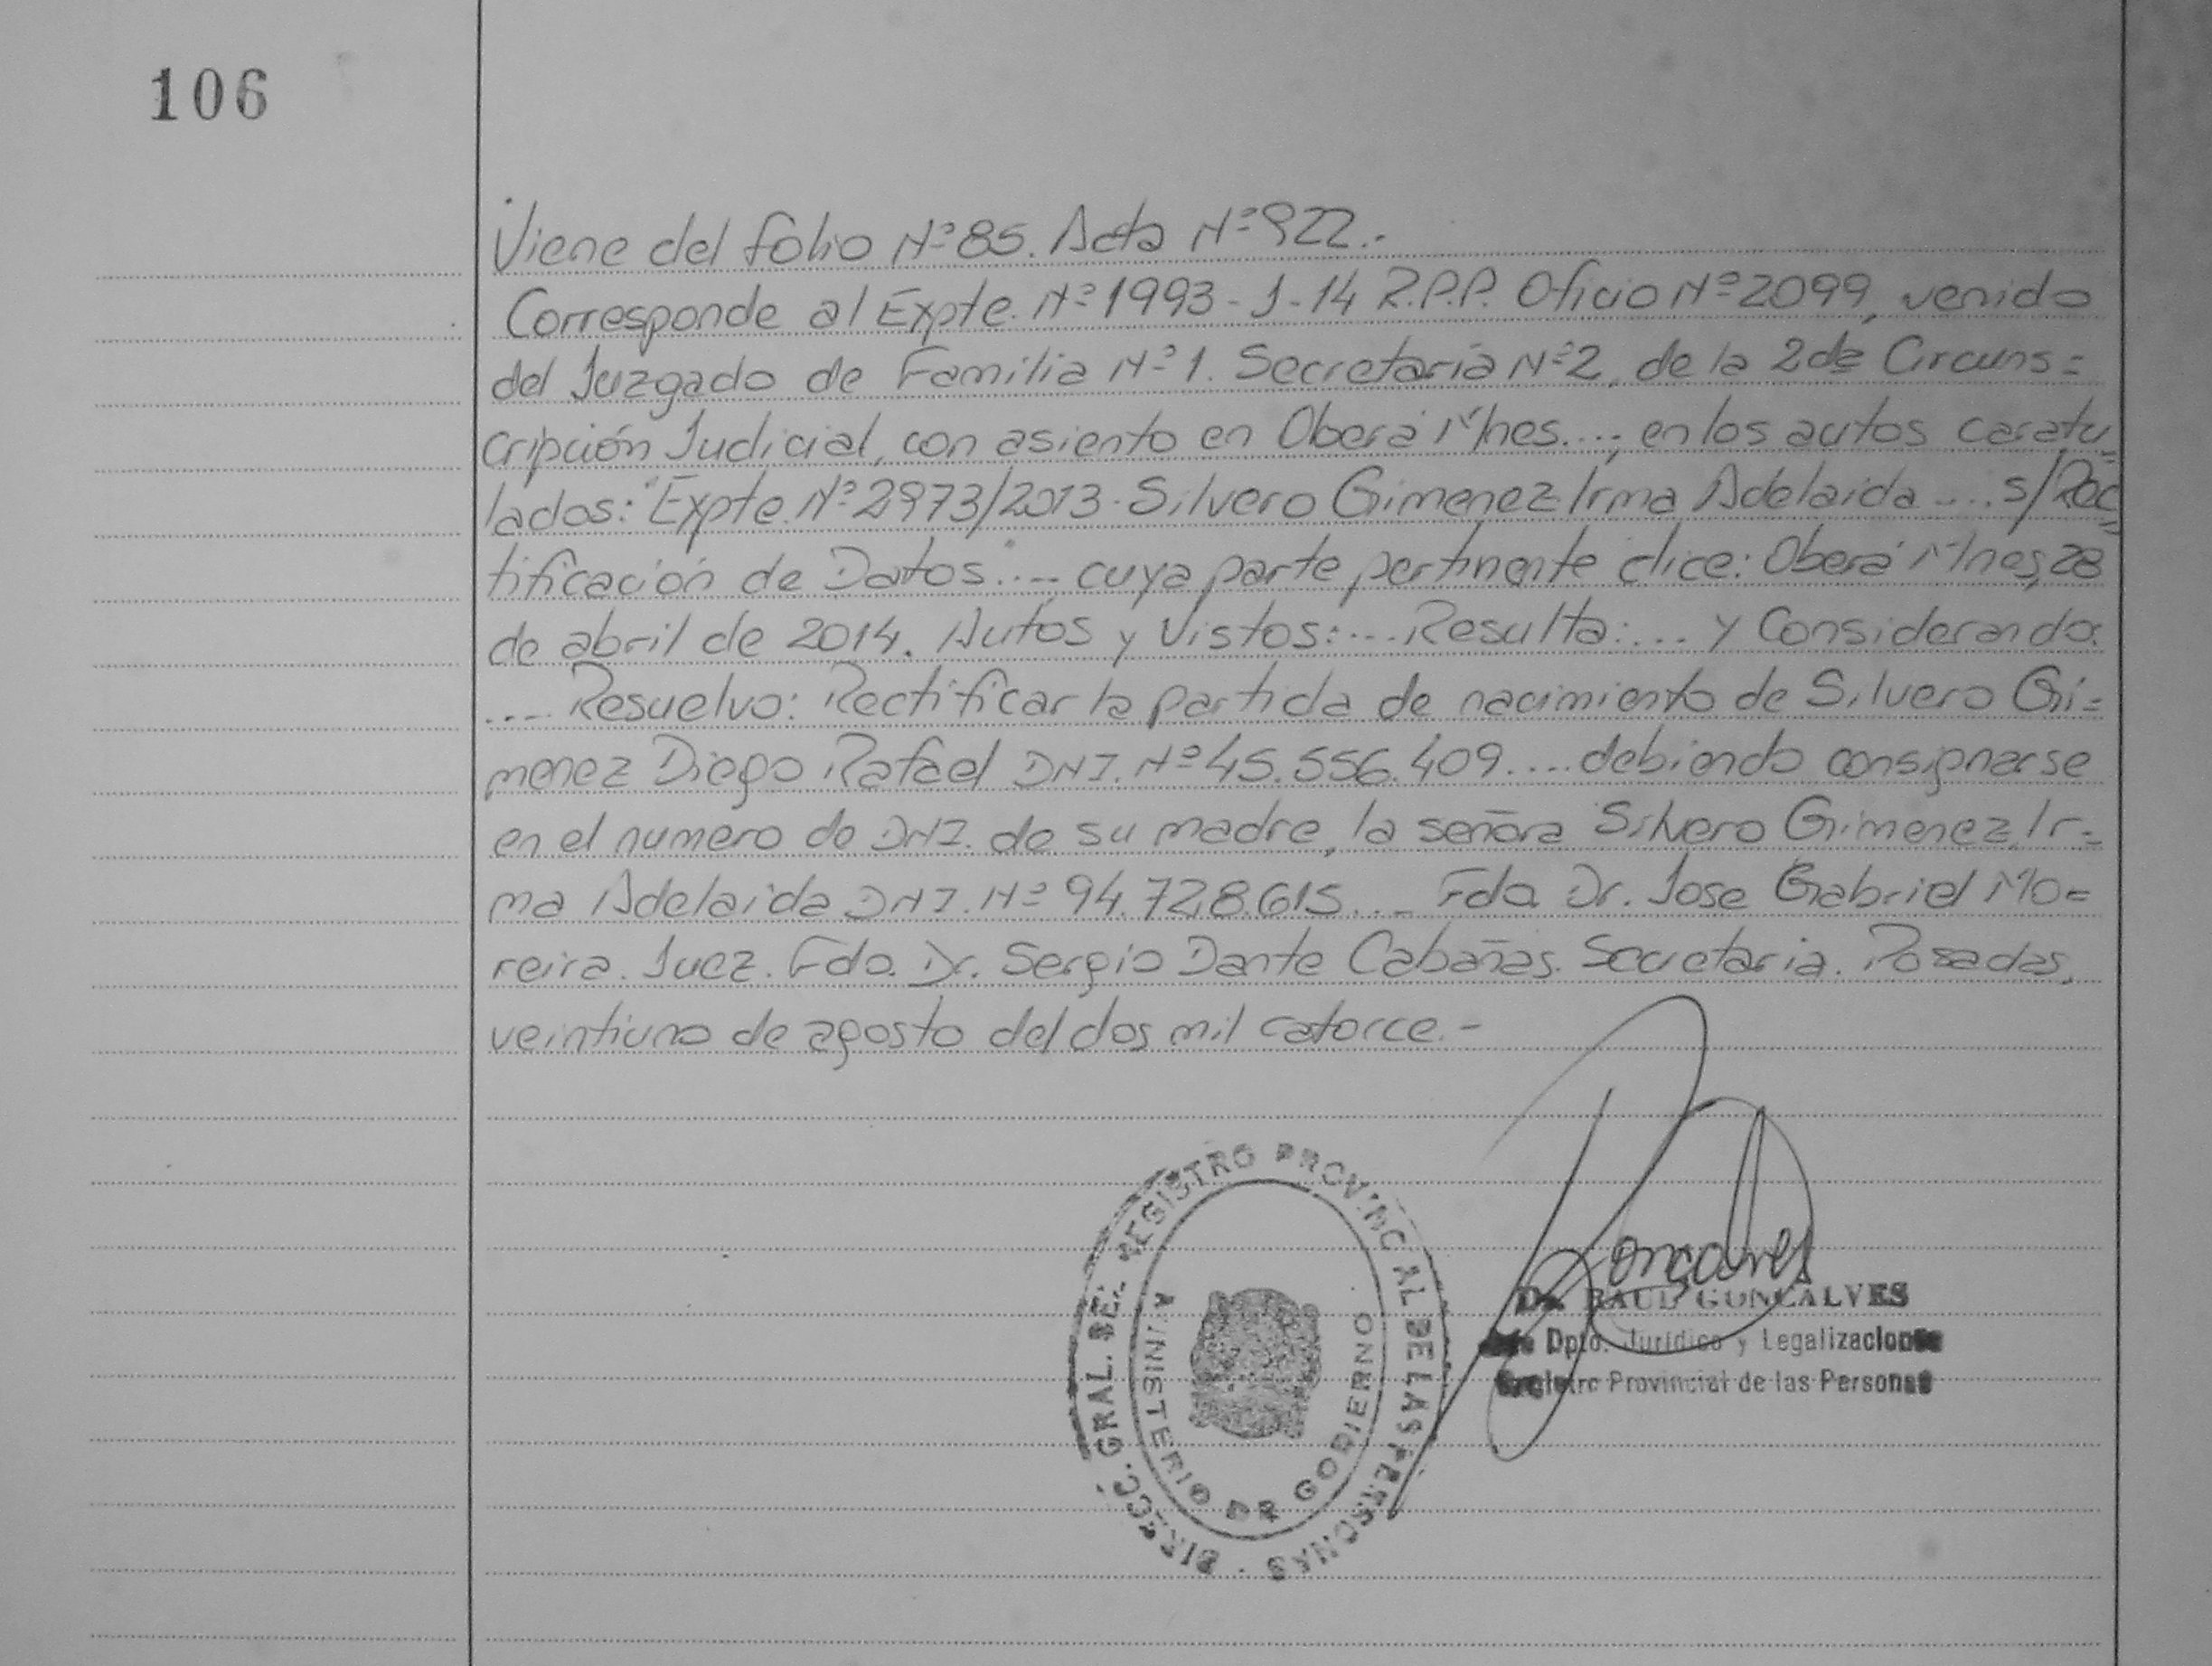 106
Viene del folio Nº 85. Acta Nº 922.-
Corresponde al Expte. Nº 1993-J-14 R.P.P. Oficio Nº 2099, venido
del Juzgado de Familia Nº 1. Secretaría Nº 2, de la 2da Circuns=
cripción Judicial, con asiento en Oberá Mnes...., en los autos caratu=
lados: "Expte. Nº 2973/2013. Silvero Gimenez Irma Adelaida .... s/Rec=
tificación de Datos".... cuya parte pertinente dice: Oberá Mnes, 28
de abril de 2014. Autos y Vistos:... Resulta:... y Considerando:
.... Resuelvo: Rectificar la partida de nacimiento de Silvero Gi=
menez Diego Rafael DNI. Nº 45.556.409.... debiendo consignarse
en el numero de DNI. de su madre, la señora Silvero Gimenez, Ir=
ma Adelaida DNI. Nº 94.728.615.... Fdo. Dr. Jose Gabriel Mo=
reira. Juez. Fdo. Dr. Sergio Dante Cabañas. Secretaria. Posadas,
veintiuno de agosto del dos mil catorce.-
DIRECC. GRAL. DEL REGISTRO PROVINCIAL DE LAS PERSONAS
MINISTERIO DE GOBIERNO
Goncalves
Dr. RAUL GONCALVES
Dpto. Jurídico y Legalizaciones
Registro Provincial de las Personas